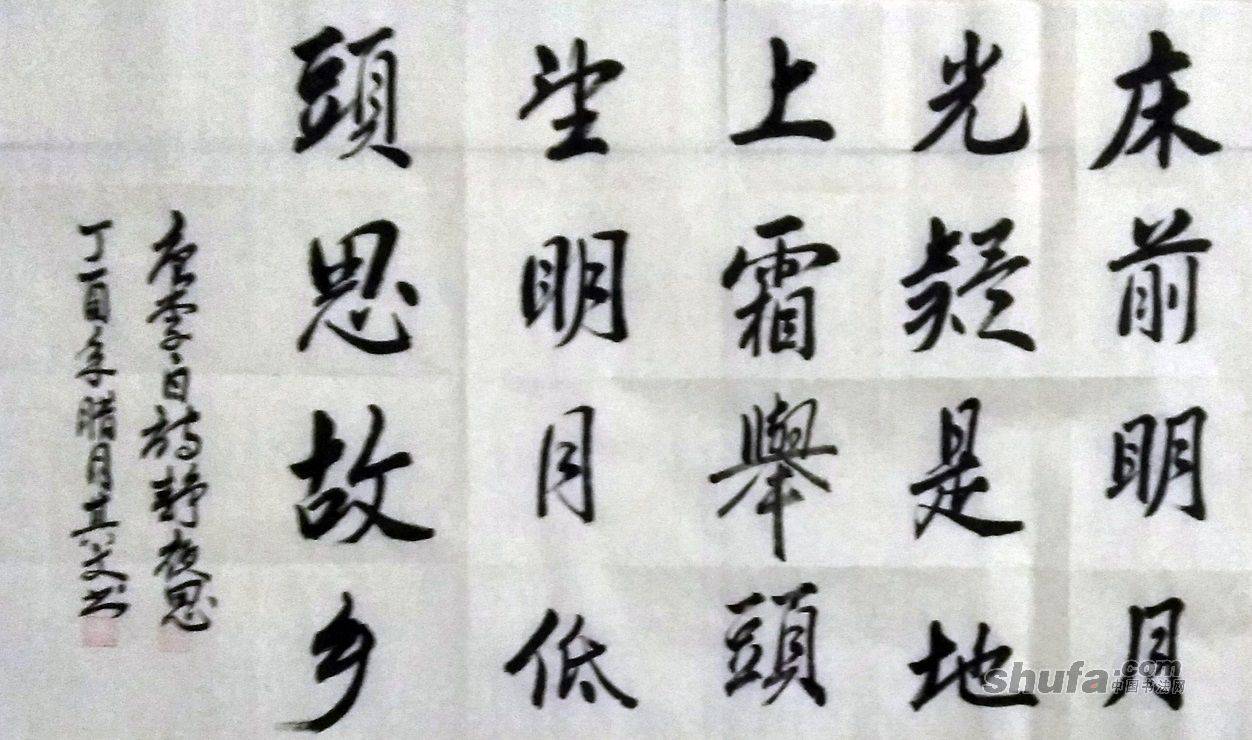 床前明月
光疑是地
上霜舉頭
望明月低
頭思故乡
唐李白诗静夜思
丁酉年腊月真文书
shufa.com
中国书法网